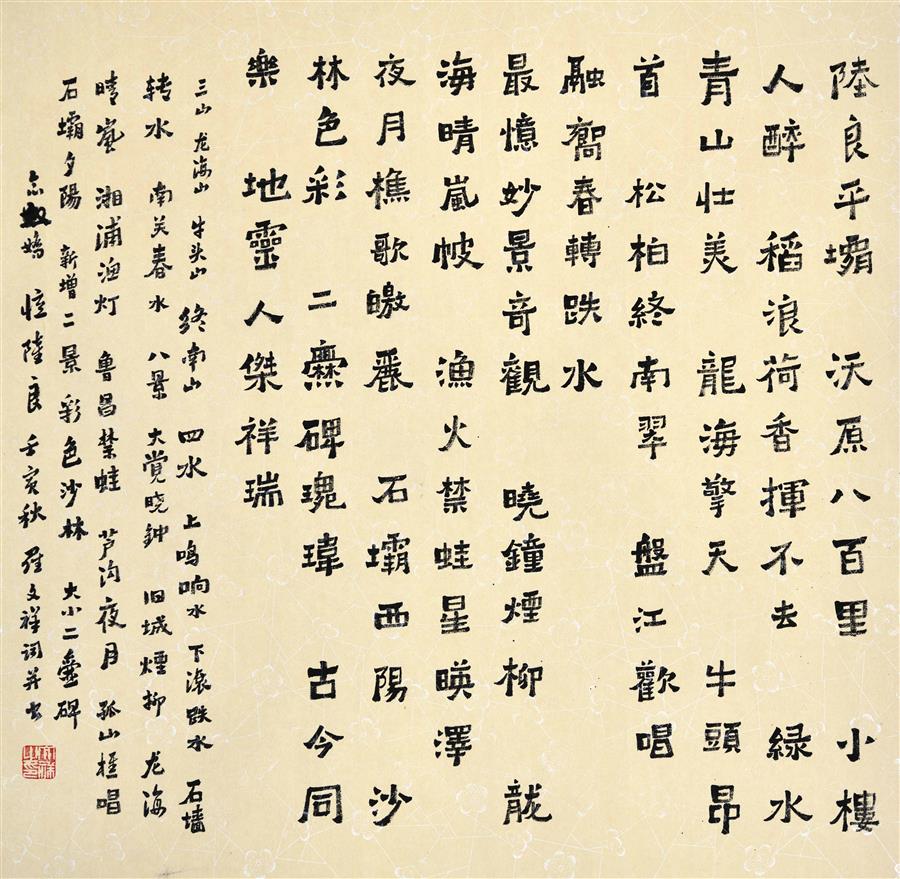 陸良平壩 沃原八百里 小樓
人醉 稻浪荷香揮不去 緑水
青山壮美 龍海擎天 牛頭昂
首 松柏終南翠 盤江歡唱
融喬春轉跌水
最憶妙景奇觀 曉鐘煙柳 龍
海晴嵐帔 漁火禁蛙星暎澤
夜月樵歌皦 石壩西陽 沙
林色彩 二爨碑瑰瑋 古今同
樂 地靈人傑祥瑞
三山 龙海山 牛头山 终南山 四水 上鸣响水 下滚跌水 石墙
转水 南关春水 八景 大觉晓鈡 旧城煙柳 龙海
晴嵐 湘浦渔灯 鲁昌禁蛙 芦沟夜月 孤山樵唱
石壩夕陽 新增二景 彩色沙林 大小二爨碑
念奴嬌 憶陸良 壬寅秋 羅文祥词并书